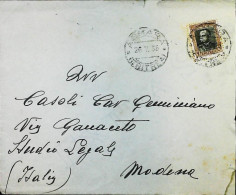 Avv
Casoli Cav Geminiano
Via Ganaceto
Studio Legale
(Italy) Modena